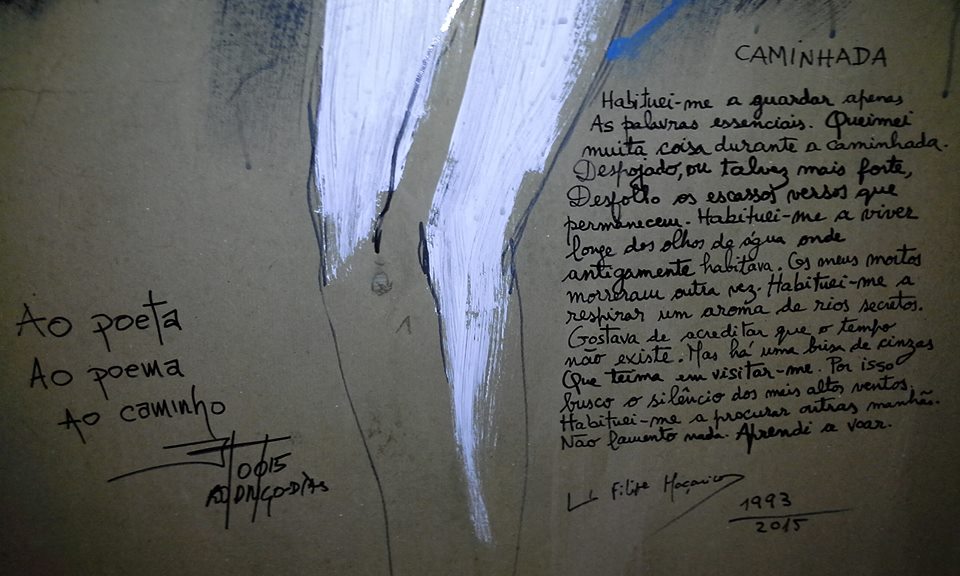 CAMINHADA
Habituei-me a guardar apenas
As palavras essenciais. Queimei
muita coisa durante a caminhada.
Despojado, ou talvez mais forte,
Desfolho os escassos versos que
permanecem. Habituei-me a viver
longe dos olhos de água onde
antigamente habitava. Os meus mortos
morreram outra vez. Habituei-me a
respirar um aroma de rios secretos.
Gostava de acreditar que o tempo
não existe. Mas há uma brisa de cinzas
Que teima em visitar-me. Por isso
busco o silêncio dos mais altos ventos.
Habituei-me a procurar outras manhãs.
Não lamento nada. Aprendi a voar.
Filipe Maçarico
1993
2015
Ao poeta
Ao poema
Ao caminho
2015
RODRIGO-DIAS